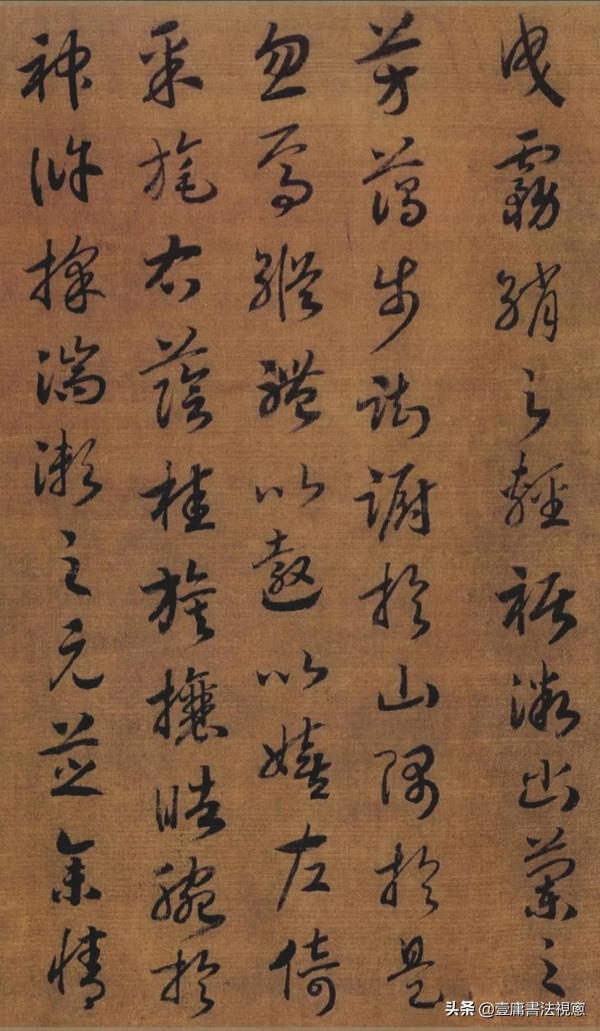 曳霧綃之輕裾微幽蘭之
芳藹步踟躕於山隅於是
忽焉縱體以遨以嬉左倚
采旄右蔭桂旗攘皓腕於
神滸採湍瀨之元芝余情
头条 @壹庸書法視窓